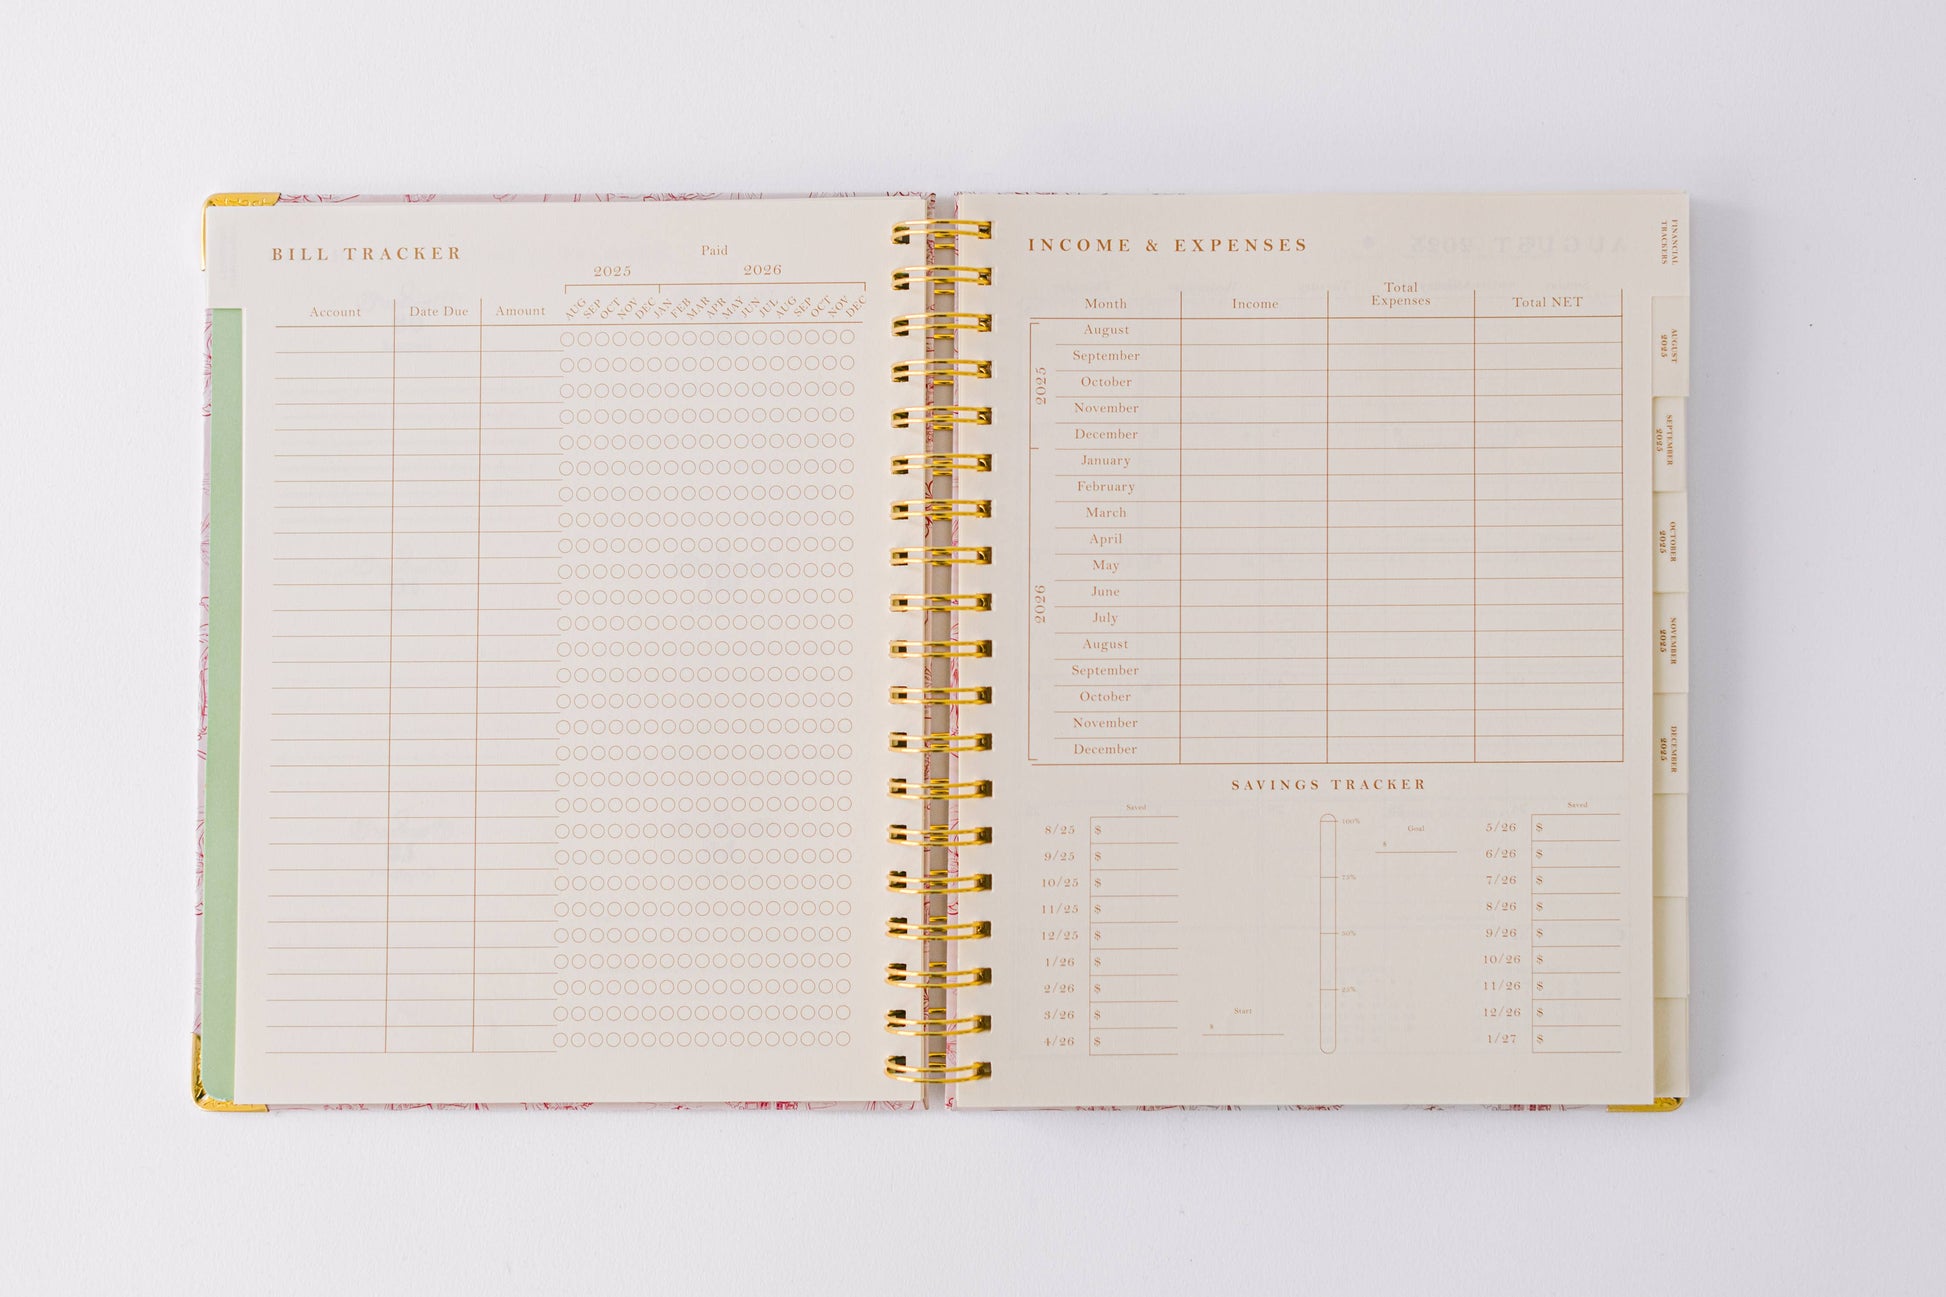 BILL TRACKER
Paid
2025 2026
Account Date Due Amount AUG SEP OCT NOV DEC JAN FEB MAR APR MAY JUN JUL AUG SEP OCT NOV DEC
INCOME & EXPENSES
Month Income Total Expenses Total NET
2025
August
September
October
November
December
2026
January
February
March
April
May
June
July
August
September
October
November
December
SAVINGS TRACKER
Saved
8/25 $
9/25 $
10/25 $
11/25 $
12/25 $
1/26 $
2/26 $
3/26 $
4/26 $
100%
75%
50%
25%
Goal
$
Start
$
Saved
5/26 $
6/26 $
7/26 $
8/26 $
9/26 $
10/26 $
11/26 $
12/26 $
1/27 $
FINANCIAL
TRACKERS
AUGUST
2025
SEPTEMBER
2025
OCTOBER
2025
NOVEMBER
2025
DECEMBER
2025